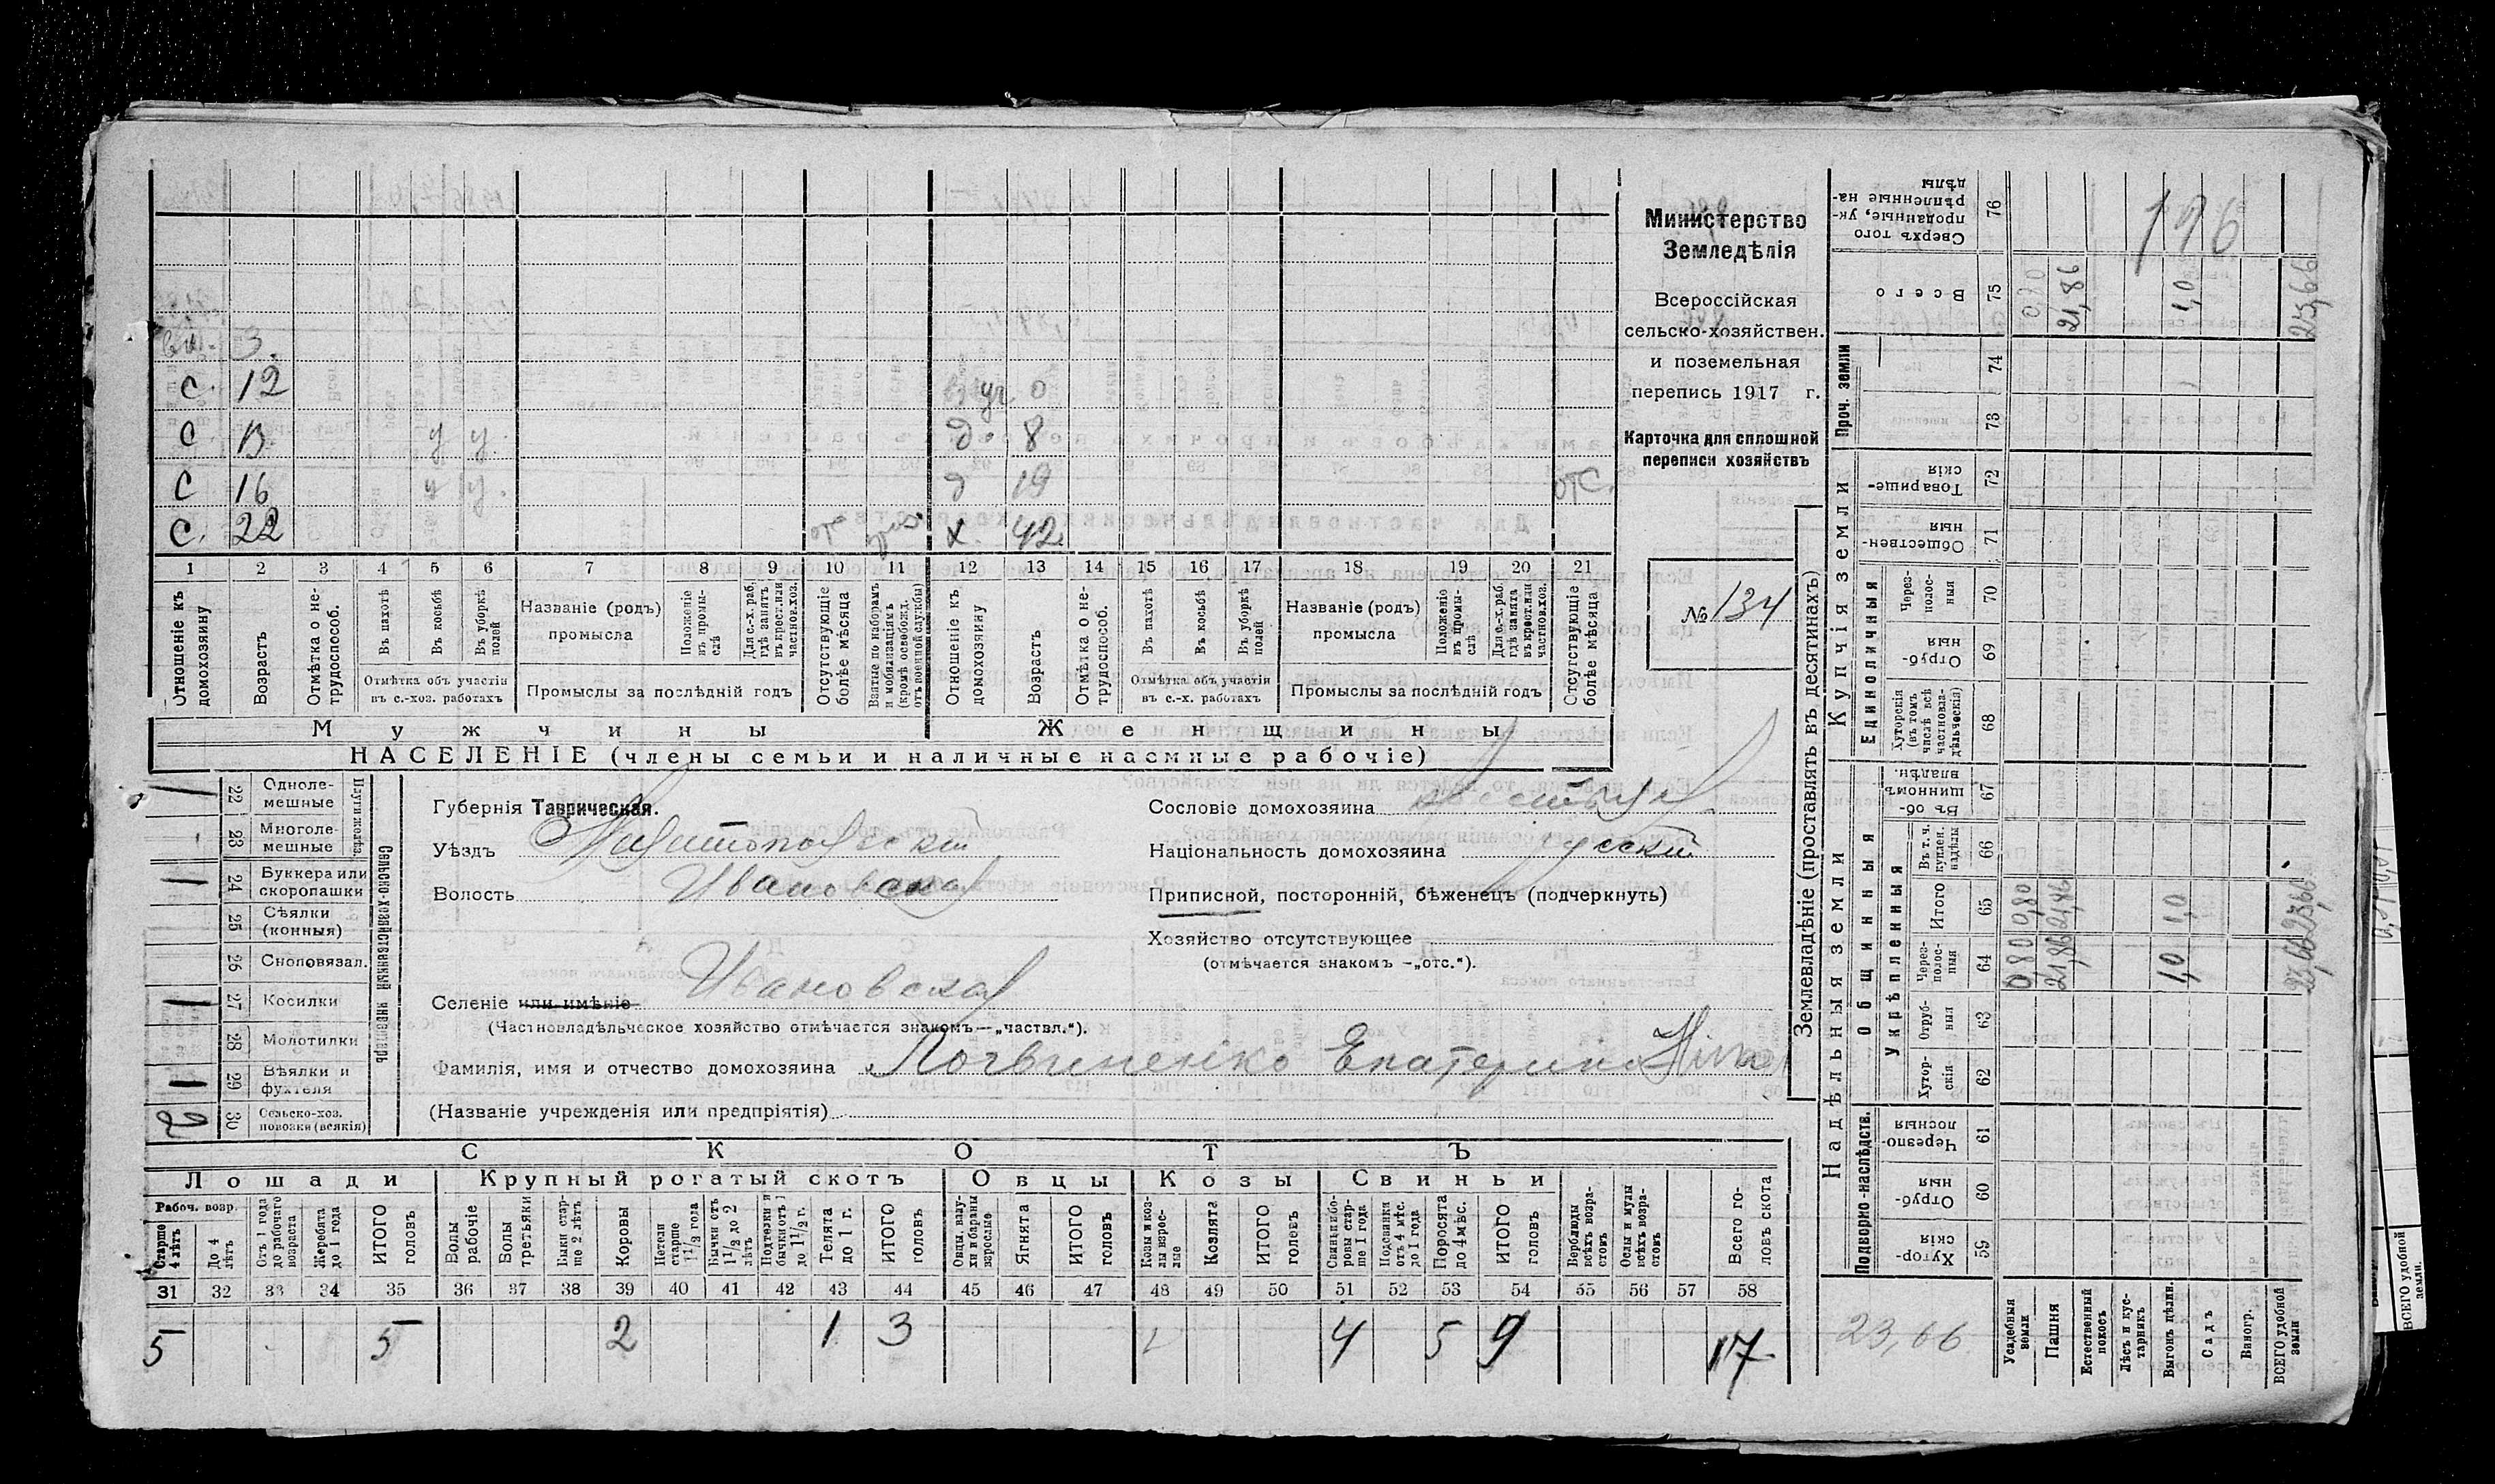 Министерство
Земледѣлія
Всероссійская
сельско-хозяйствен.
и поземельная
перепись 1917 г.
Карточка для сплошной
переписи хозяйствъ
№ 134
3.
С. 12
С. 13 у у. д. 8
С 16 у у. д 19 отс.
С. 22 х. 42
1 2 3 4 5 6 7 8 9 10 11 12 13 14 15 16 17 18 19 20 21
Отношеніе къ домохозяину
Возрастъ
Отмѣтка о не-трудоспособ.
Въ пахотѣ
Въ косьбѣ
Въ уборкѣ полей
Отмѣтка объ участіи въ с.-хоз. работахъ
Названіе (родъ) промысла
Положеніе въ промы-слѣ
Для с.-х. раб. гдѣ занятъ въ крест. или частнов. хоз.
Промыслы за послѣдній годъ
Отсутствующіе болѣе мѣсяца
Взятые по наборамъ и мобилизаціямъ (кромѣ освобожд. отъ военной службы)
Отношеніе къ домохозяину
Возрастъ
Отмѣтка о не-трудоспособ.
Въ пахотѣ
Въ косьбѣ
Въ уборкѣ полей
Отмѣтка объ участіи въ с.-х. работахъ
Названіе (родъ) промысла
Положеніе въ промы-слѣ
Для с.-х. раб. гдѣ занята въ крест. или частнов. хоз.
Промыслы за послѣдній годъ
Отсутствующіе болѣе мѣсяца
Мужчины Женщины
НАСЕЛЕНІЕ (члены семьи и наличные наемные рабочіе)
Сельско-хозяйственный инвентарь
Плуги желѣз.
22 Одноле-мешные
23 Многоле-мешные
24 Буккера или скоропашки
25 Сѣялки (конныя)
26 Сноповязал.
27 Косилки
28 Молотилки
29 Вѣялки и фухтеля
30 Сельско-хоз. повозки (всякія)
Губернія Таврическая.
Уѣздъ Мелитопольскій
Волость Ивановская
Селеніе или имѣніе Ивановская
(Частновладѣльческое хозяйство отмѣчается знакомъ—„частвл.“).
Фамилія, имя и отчество домохозяина Логвиненко Екатерина
(Названіе учрежденія или предпріятія)
Сословіе домохозяина
Національность домохозяина русскій
Приписной, посторонній, бѣженецъ (подчеркнуть)
Хозяйство отсутствующее
(отмѣчается знакомъ —„отс.“).
СКОТЪ
Лошади Крупный рогатый скотъ Овцы Козы Свиньи
Рабоч. возр.
Старше 4 лѣтъ
До 4 лѣтъ
Отъ 1 года до рабочаго возраста
Жеребята до 1 года
ИТОГО головъ
Волы рабочіе
Волы третьяки
Быки стар-ше 2 лѣтъ
Коровы
Нетели старше 1 1/2 года
Бычки отъ 1 1/2 до 2 лѣтъ
Подтелки и бычки отъ 1 до 1 1/2 г.
Телята до 1 г.
ИТОГО головъ
Овцы, валу-хи и бараны взрослые
Ягнята
ИТОГО головъ
Козы и коз-лы взрос-лые
Козлята
ИТОГО головъ
Свиньи бо-ровы стар-ше 1 года
Подсвинки отъ 4 мѣс. до 1 года
Поросята до 4 мѣс.
ИТОГО головъ
Верблюды всѣхъ возра-стовъ
Ослы и мулы всѣхъ возра-стовъ
Всего го-ловъ скота
31 32 33 34 35 36 37 38 39 40 41 42 43 44 45 46 47 48 49 50 51 52 53 54 55 56 57 58
5 5 2 1 3 4 5 9 17
Землевладѣніе (проставлять въ десятинахъ)
Надѣльныя земли Купчія земли Проч. земли
Подворно-наслѣдств. Общинныя Укрѣпленныя Единоличныя
59 Хутор-скія
60 Отруб-ныя
61 Черезпо-лосныя
62 Хутор-скія
63 Отруб-ныя
64 Черезполос-ныя
65 Итого
66 Въ т. ч. куплен. надѣлы
67 Въ об-щинномъ владѣн.
68 Хуторскія (въ томъ числѣ всѣ частновла-дѣльческія)
69 Отруб-ныя
70 Через-полос-ныя
71 Обществен-ныя
72 Товарище-скія
73
74
75 Всего
76 Сверхъ того проданные, ук-рѣпленные на-дѣлы
Усадебныя земли 0,80 0,80
Пашня 21,86 21,86 21,86
Естественный покосъ
Лѣсъ и кус-тарникъ
Выгонъ цѣлин. 1,0 1,0 1,0
Садъ
Виногр.
ВСЕГО удобной земли 23,66 23,66 23,66
23,66
196
ВСЕГО удобной земли.